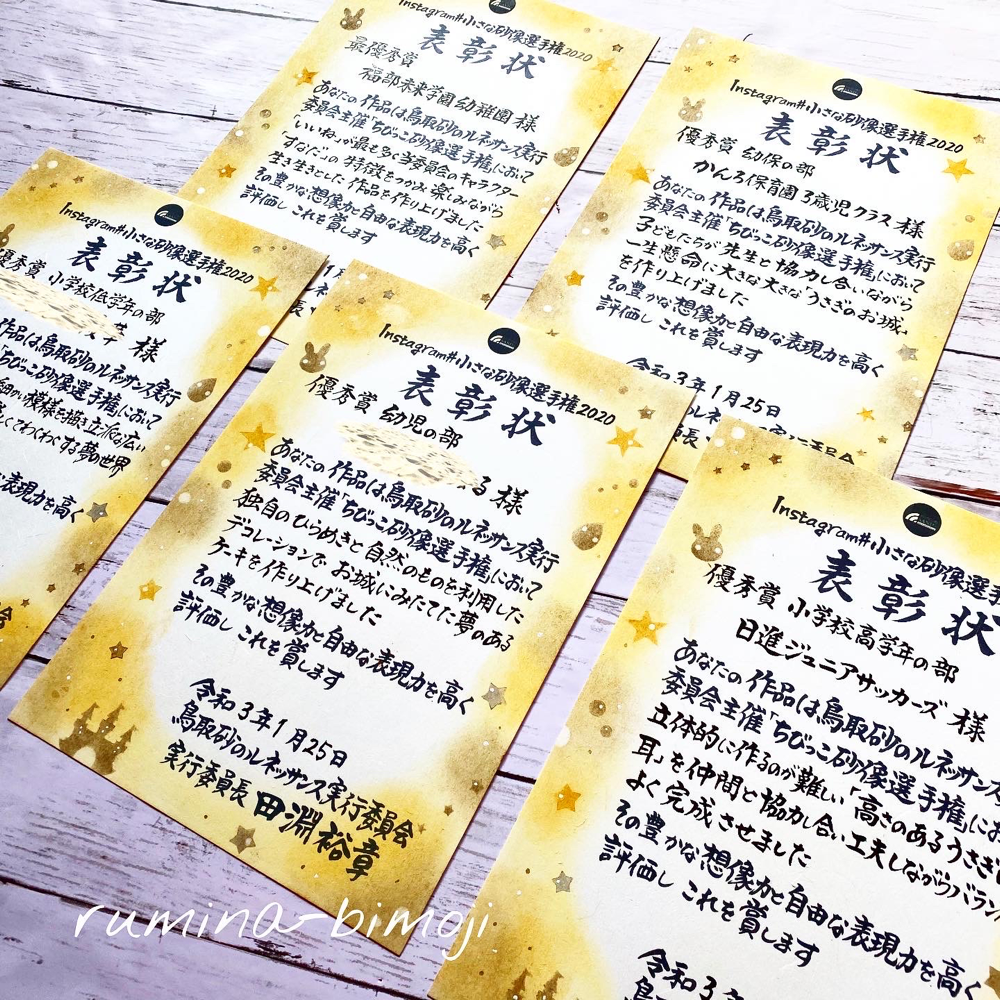 Instagram#小さな砂像選手権2020
表彰状
最優秀賞
福部未来学園幼稚園 様
あなたの作品は鳥取砂のルネッサンス実行
委員会主催「ちびっこ砂像選手権」において
「いいね」が最も多く当委員会のキャラクター
「すなだ」の特徴をつかみ楽しみながら
生き生きとした作品を作り上げました
その豊かな想像力と自由な表現力を高く
評価し これを賞します
Instagram#小さな砂像選手権2020
表彰状
優秀賞 幼保の部
かんろ保育園3歳児クラス 様
あなたの作品は鳥取砂のルネッサンス実行
委員会主催「ちびっこ砂像選手権」において
子どもたちが先生と協力し合いながら
一生懸命に大きな大きな「うさぎのお城」
を作り上げました
その豊かな想像力と自由な表現力を高く
評価し これを賞します
令和3年1月25日
Instagram#小さな砂像選手権2020
表彰状
優秀賞 小学校低学年の部
様
作品は鳥取砂のルネッサンス実行
ちびっこ砂像選手権」において
細かい模様を描き立派な広い
してわくわくする夢の世界
表現力を高く
Instagram#小さな砂像選手権2020
表彰状
優秀賞 幼児の部
る 様
あなたの作品は鳥取砂のルネッサンス実行
委員会主催「ちびっこ砂像選手権」において
独自のひらめきと自然のものを利用した
デコレーションで お城にみたてた夢のある
ケーキを作り上げました
その豊かな想像力と自由な表現力を高く
評価し これを賞します
令和3年1月25日
鳥取砂のルネッサンス実行委員会
実行委員長 田淵裕章
Instagram#小さな砂像選手
表彰状
優秀賞 小学校高学年の部
日進ジュニアサッカーズ 様
あなたの作品は鳥取砂のルネッサンス
委員会主催「ちびっこ砂像選手権」にお
立体的に作るのが難しい「高さのあるうさぎ
耳」を仲間と協力し合い工夫しながらバラン
よく完成させました
その豊かな想像力と自由な表現力を高く
評価し これを賞します
令和3
rumina-bimoji